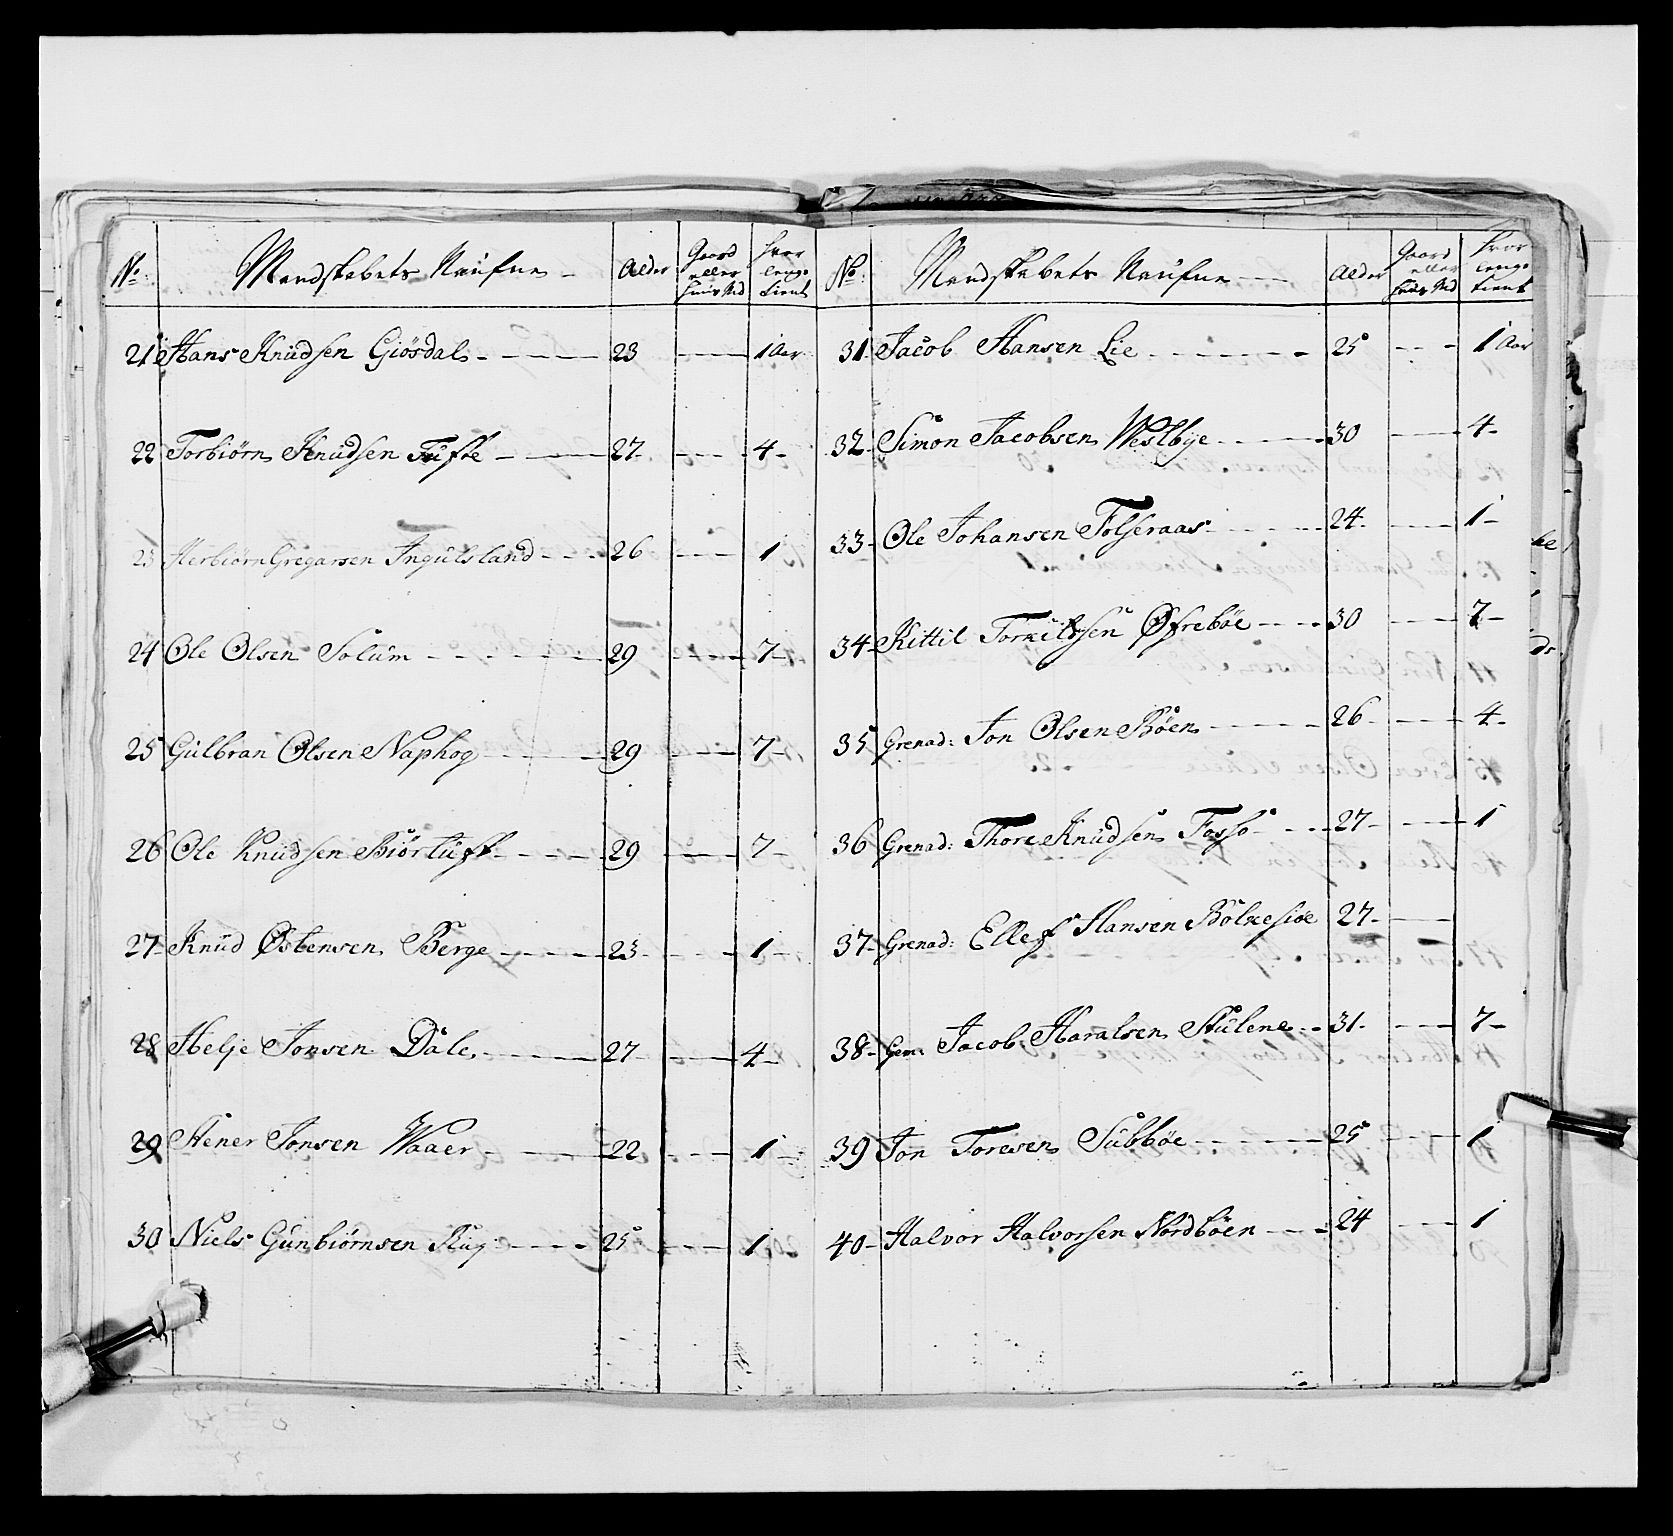 No: Mandskabets Naufne - Alder Gaard eller Huus Md Hvor lenge tient
21 Hans Knudsen Giösdal - 23 - - 1 Aar
22 Torbiörn Knudsen Tufte - 27 - - 4 -
23 Herbiörn Gregarsen Ingulsland - 26 - - 1
24 Ole Olsen Solum - 29 - - 7 -
25 Gulbran Olsen Naphog - 29 - - 7 -
26 Ole Knudsen Biörtuft - 29 - - 7 -
27 Knud Östensen Berge - 23 - - 1 -
28 Helje Jonsen Dale - 27 - - 4 -
29 Stener Jonsen Waaer - 22 - - 1 -
30 Niels Gunbiörnsen Rug - 25 - - 1 -
No: Mandskabets Naufne - Alder Gaard eller Huus Md Hvor lenge tient
31 Jacob Hansen Lie - 25 - - 1 Aar
32 Simon Jacobsen Westbye - 30 - - 4 -
33 - Ole Johansen Folseraas - 24 - - 1 -
34 - Kittil Torkilssen Øfrebøe - 30 - - 7 -
35 Grenad: Jon Olsen Böen - 26 - - 4 -
36 Grenad: Thore Knudsen Fosso - 27 - - 1
37 - Grenad: Ellef Hansen Bolkesiøe 27 - -
38 - Gren: Jacob Haralsen Stulene - 31 - - 7 -
39 Jon Toresen Subbøe - 25 - - 1
40 - Halvor Halvorsen Nordböen - 24 - - 1